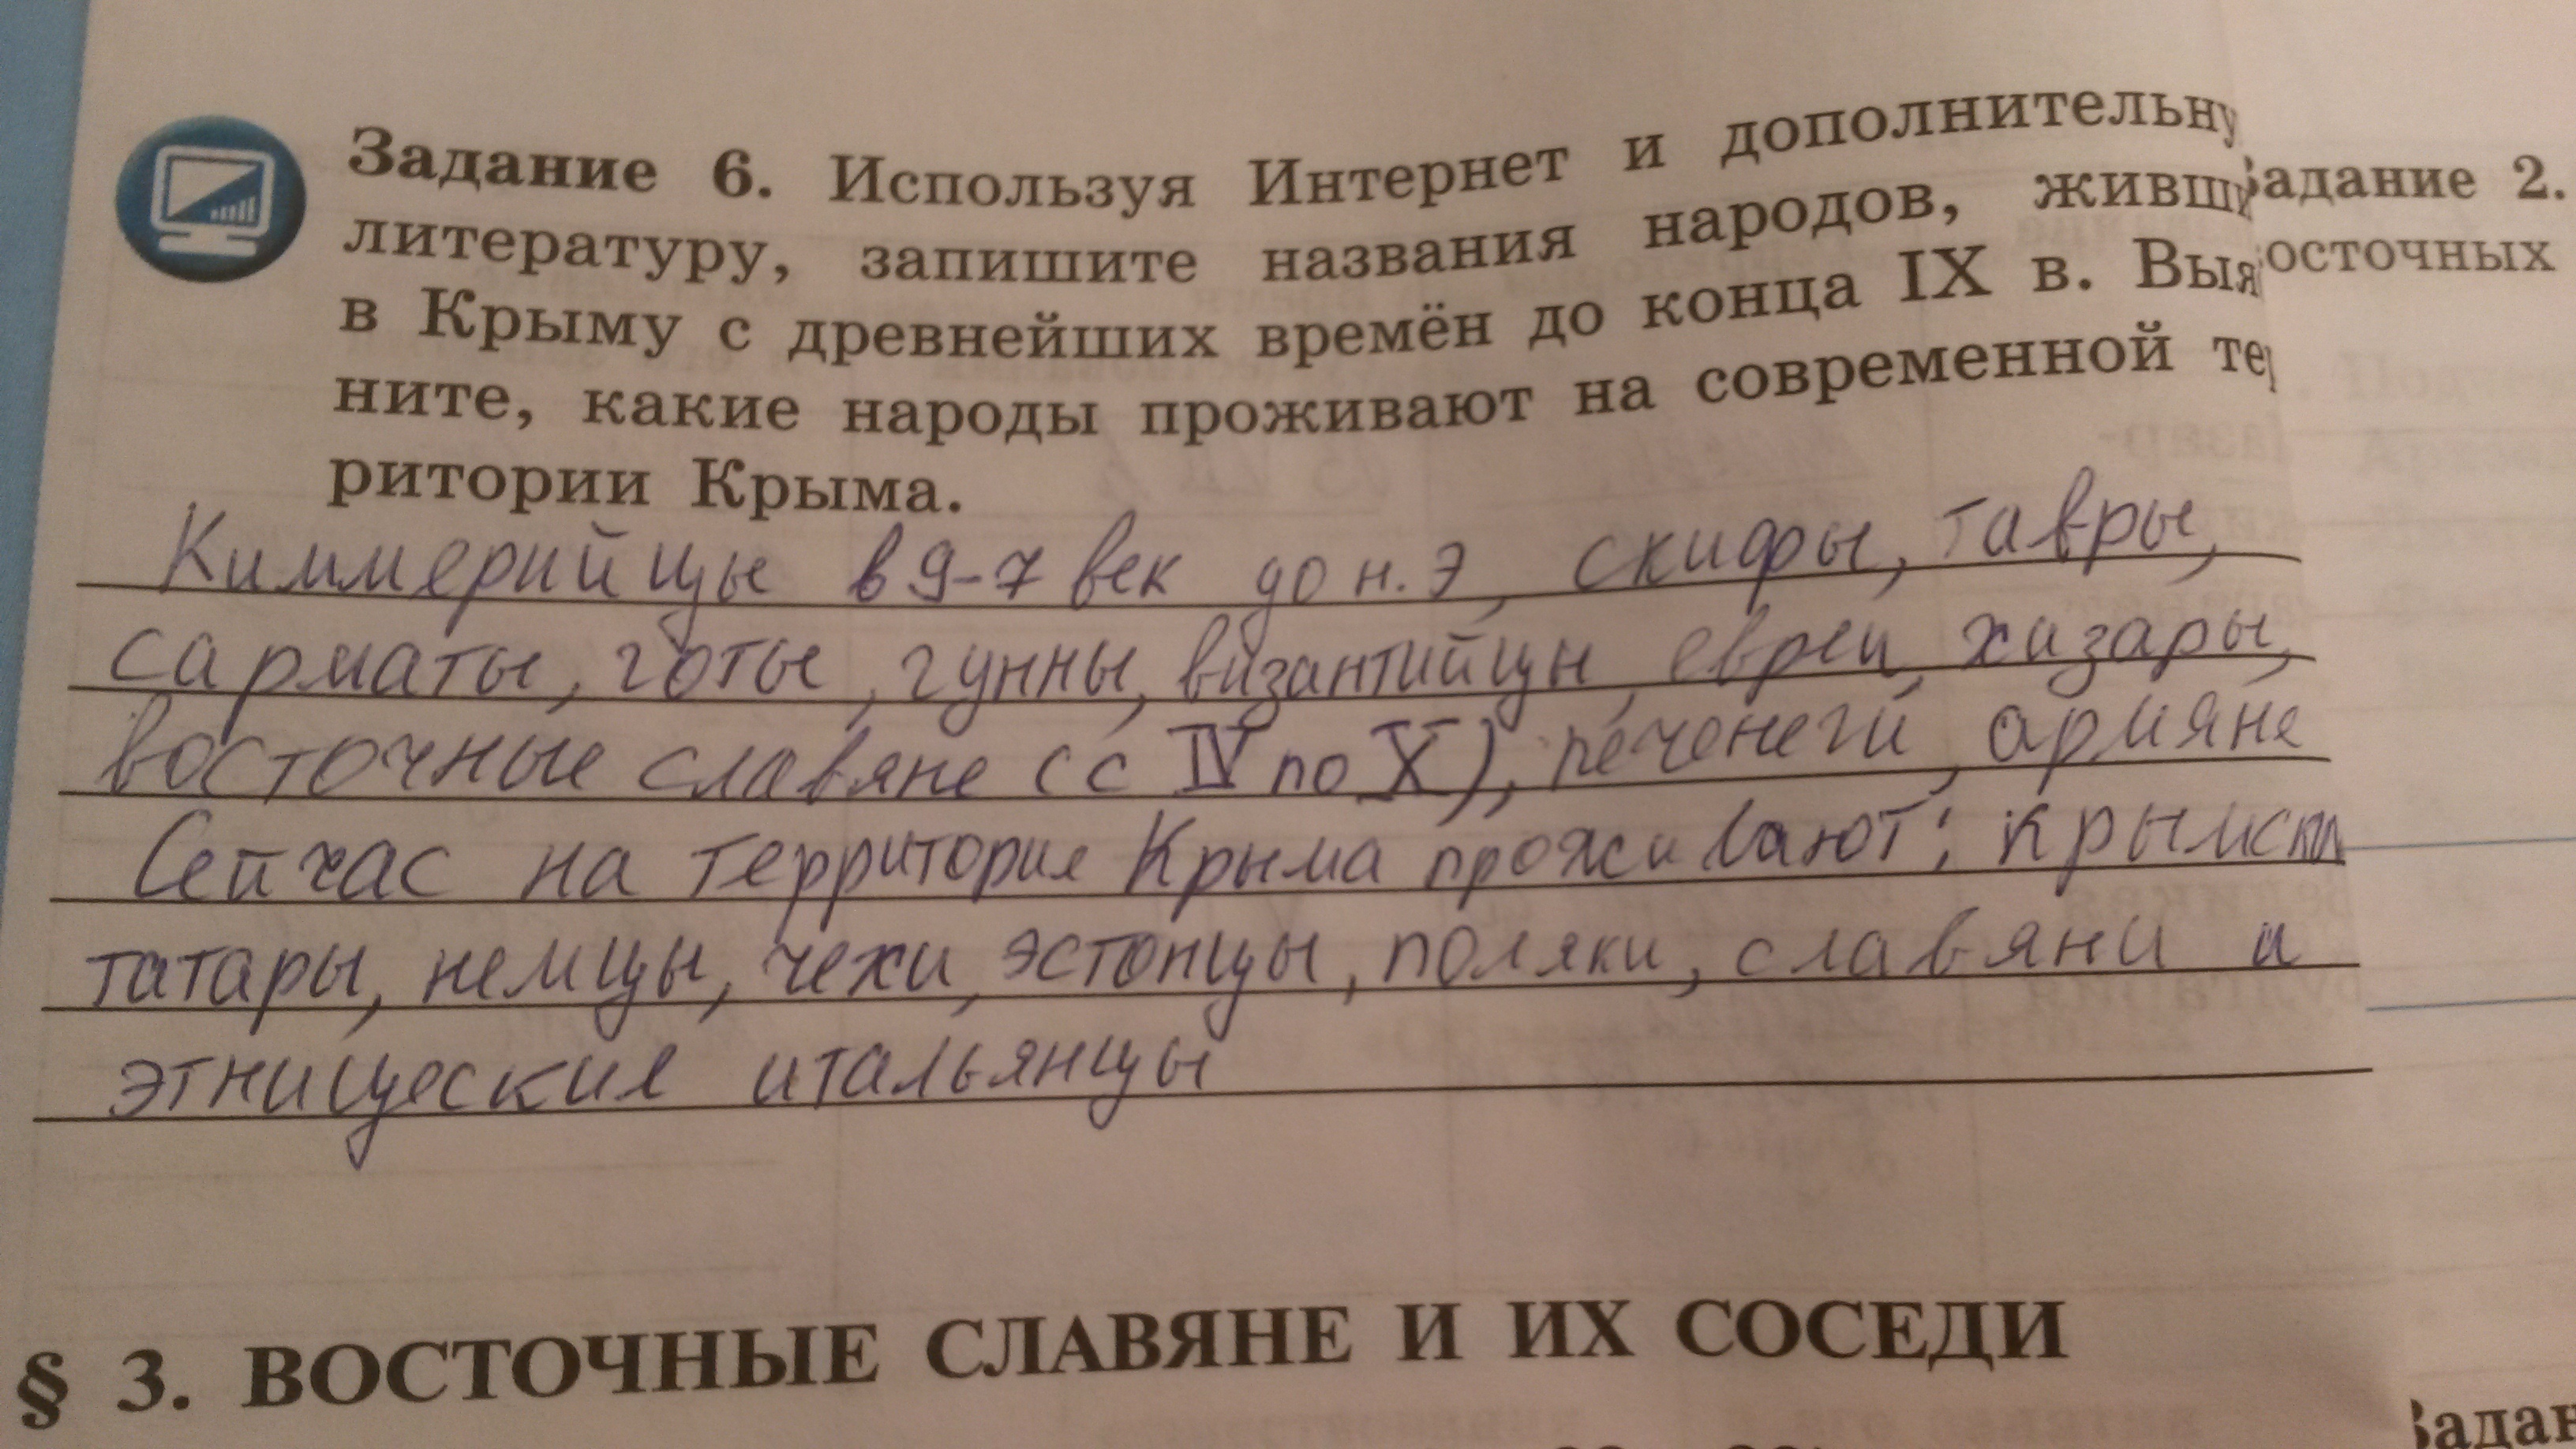 Задание 6. Используя Интернет и дополнительну
литературу, запишите названия народов, живши
в Крыму с древнейших времён до конца IX в. Выя
ните, какие народы проживают на современной тер
ритории Крыма.
Киммерийцы в 9-7 век до н.э, скифы, тавры,
сарматы, готы, гунны, византийцы, евреи, хазары,
восточные славяне (с IV по X), печенеги, армяне
Сейчас на территории Крыма проживают: крымск
татары, немцы, чехи, эстонцы, поляки, славяни и
этницеские итальянцы
§ 3. ВОСТОЧНЫЕ СЛАВЯНЕ И ИХ СОСЕДИ
адание 2.
осточных
Задан